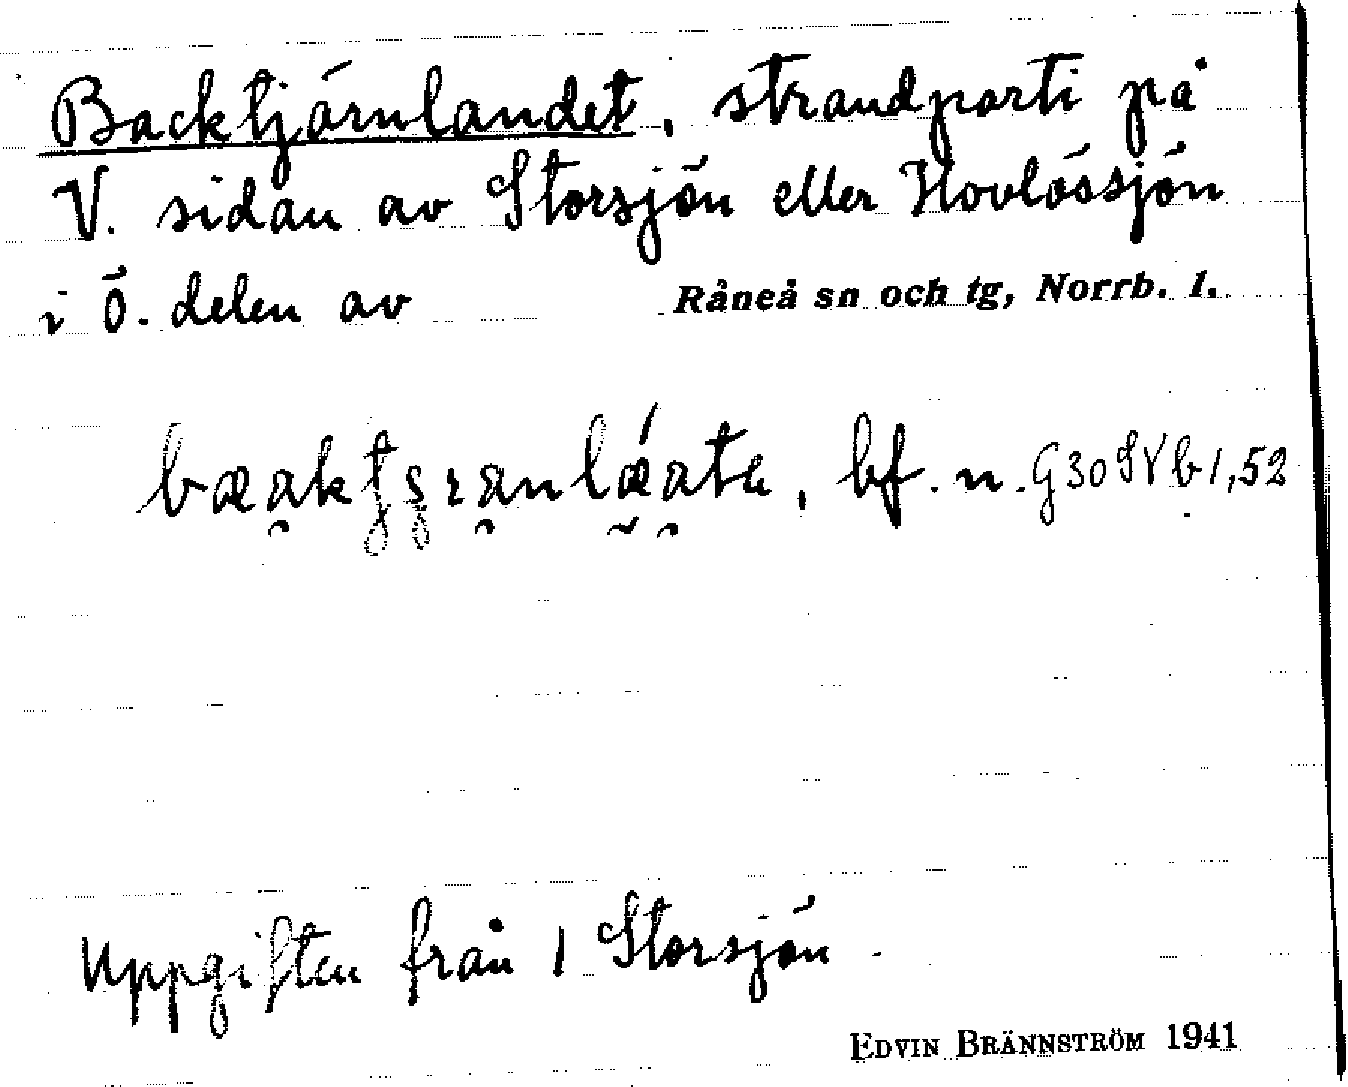 Backtjärnlandet, strandparti på
V. sidan av Storsjön eller Hovlössjön
i Ö. delen av Råneå sn och tg, Norrb. l.
bf. n. G30 SV b 1,52
Uppgiften från 1 Storsjön
EDVIN BRÄNNSTRÖM 1941